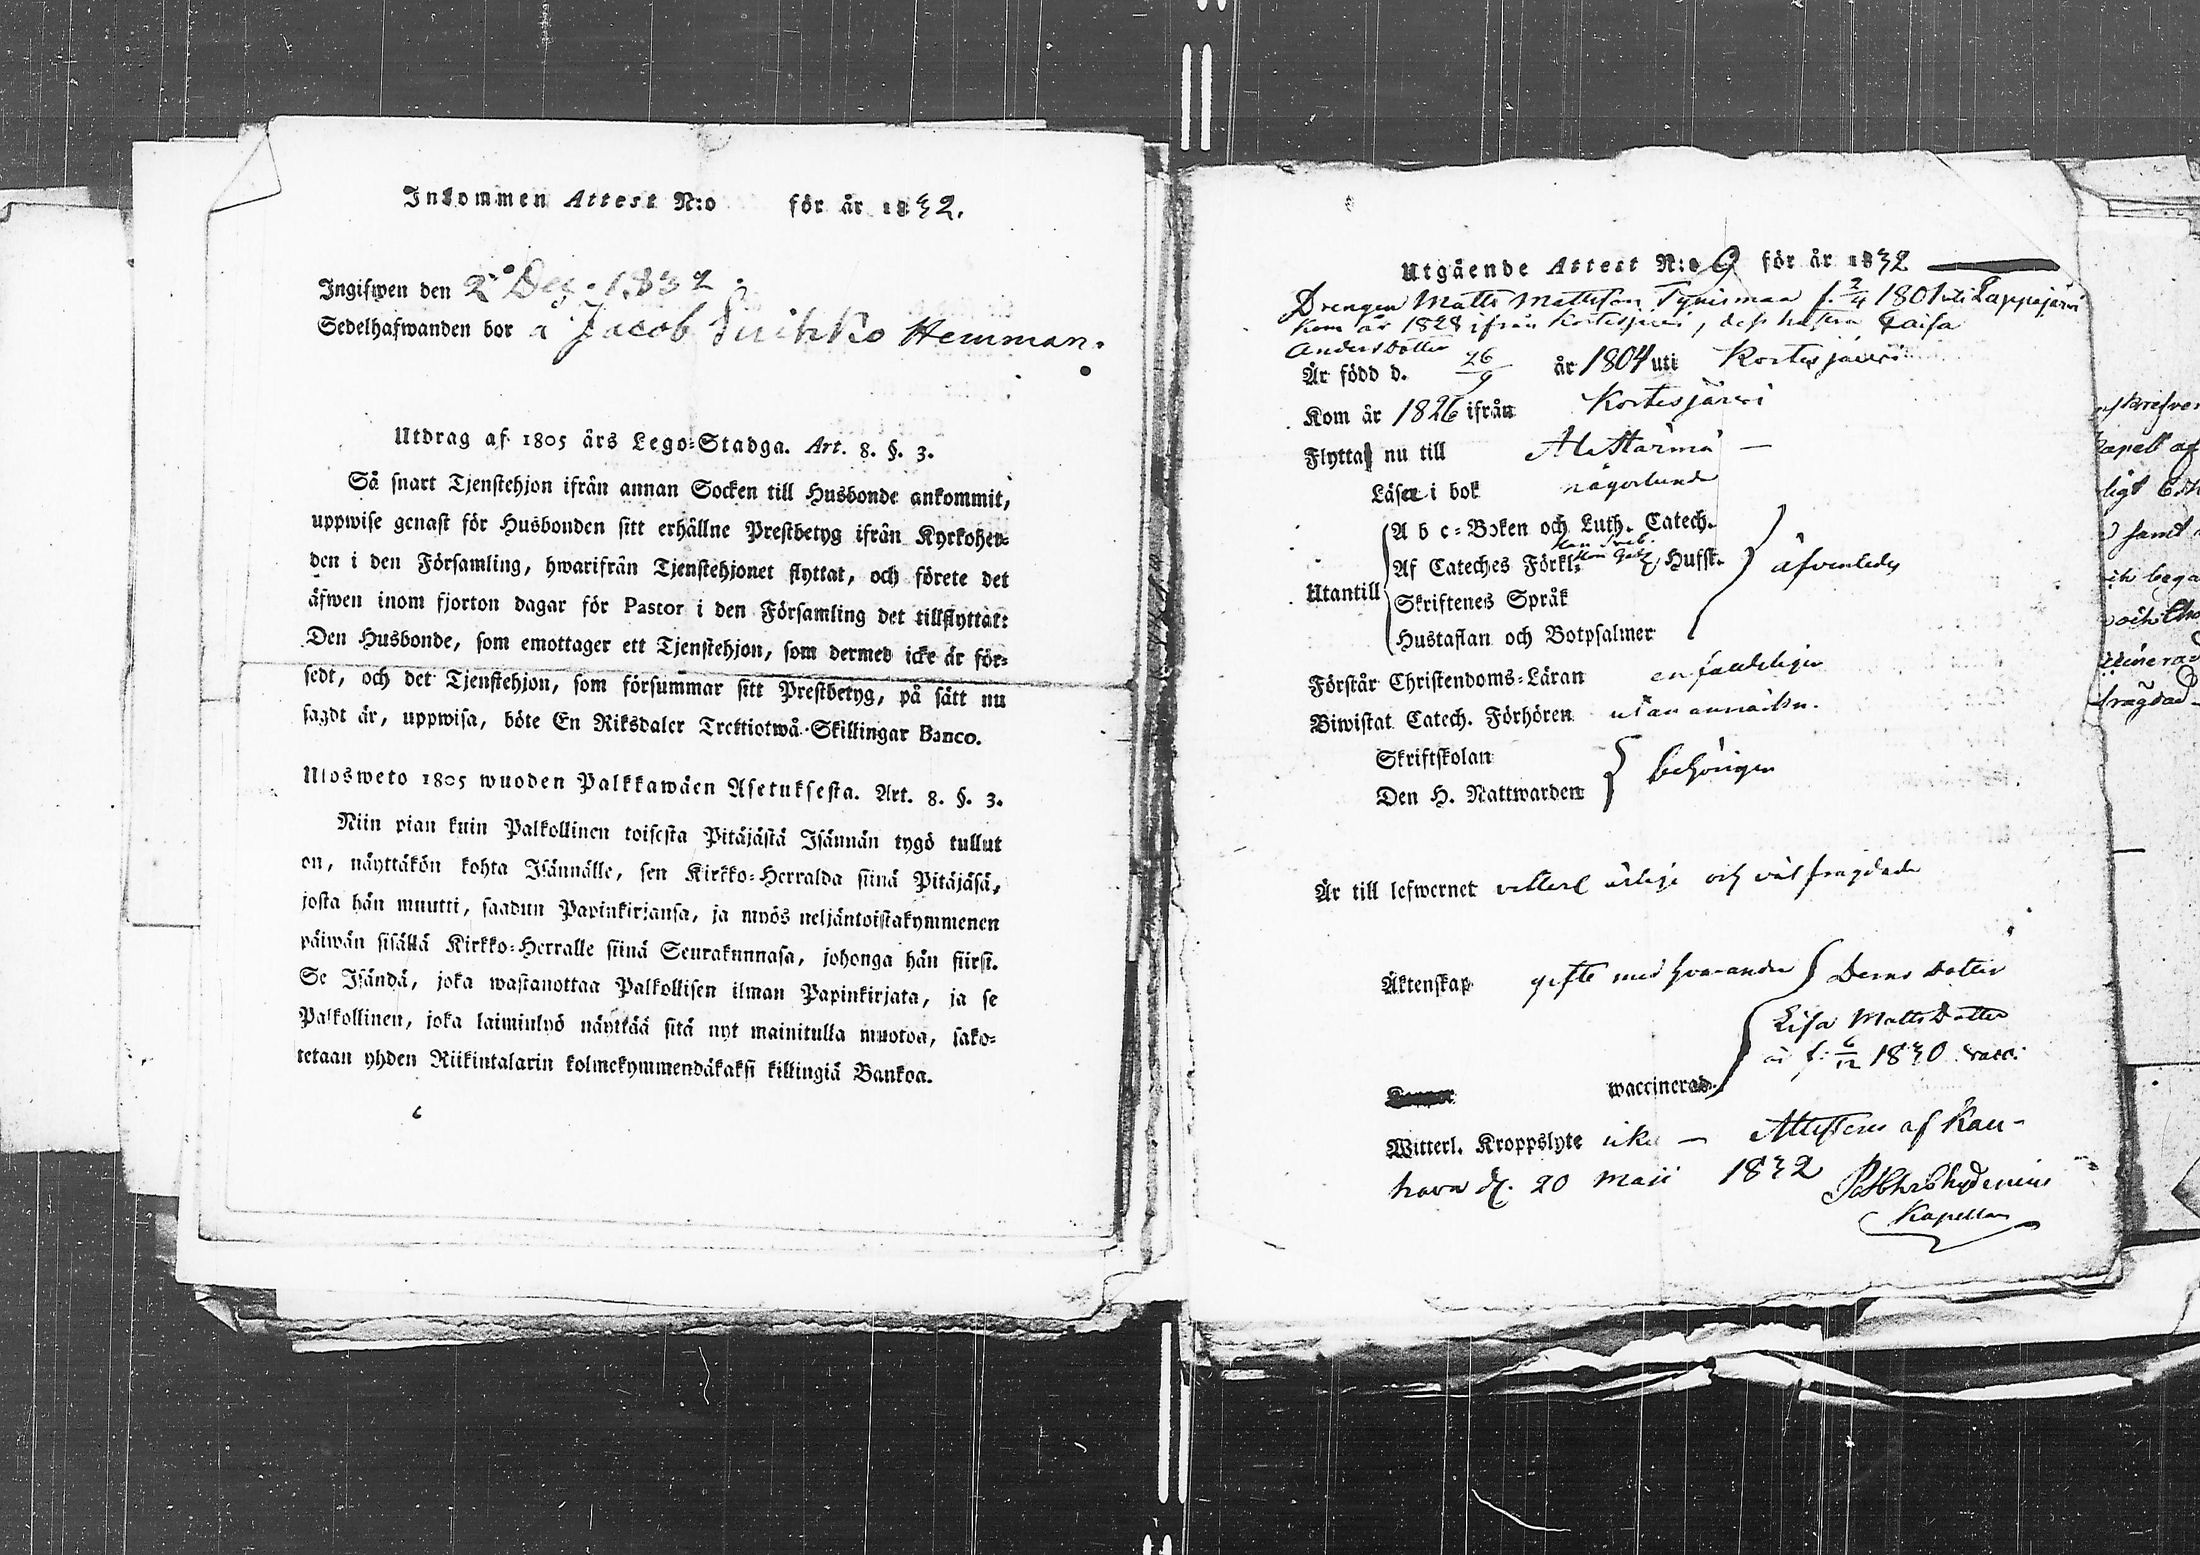 Inkommen Attest N:o för år 1832.
Ingifwen den 2 Dec. 1832
Sedelhafwanden bor å Jacob Hemman.
Utdrag af 1805 års Lego-Stadga. Art. 8. §. 3.
Så snart Tjenstehjon ifrån annan Socken till Husbonde ankommit,
uppwise genast för Husbonden sitt erhållne Prestbetyg ifrån Kyrkoher-
den i den Församling, hwarifrån Tjenstehjonet flyttat, och förete det
äfwen inom fjorton dagar för Pastor i den Församling det tillflyttat:
Den Husbonde, som emottager ett Tjenstehjon, som dermed icke är för-
sedt, och det Tjenstehjon, som försummar sitt Prestbetyg, på sätt nu
sagdt är, uppwisa, böte En Riksdaler Trettiotwå Skillingar Banco.
Ulosweto 1805 wuoden Palkkawäen Asetuksesta. Art. 8. §. 3.
Niin pian kuin Palkollinen toisesta Pitäjästä Isännän tygö tullut
on, näyttäkön kohta Isännälle, sen Kirkko-Herralda siinä Pitäjäsä,
josta hän muutti, saadun Papinkirjansa, ja myös neljäntoistakymmenen
päiwän sisällä Kirkko-Herralle siinä Seurakunnasa, johonga hän siirsi.
Se Isändä, joka wastanottaa Palkollisen ilman Papinkirjata, ja se
Palkollinen, joka laiminlyö näyttää sitä nyt mainitulla muotoa, sako-
tetaan yhden Riikintalarin kolmekymmendäkaksi killingiä Bankoa.
Utgående Attest N:o 9 för år 1832
Drengen Matts Mattsson f. 2/4 1801 uti Lappajärvi
Kom år 1828 ifrån Kortesjärvi, dess hustru Caisa
Andersdotter
Är född d. 26/9 år 1804 uti Kortesjärvi
Kom år 1826 ifrån Kortesjärvi
Flytta nu till Alahärmä
Läser i bok någorlunda
Utantill
A b c-Boken och Luth. Catech.
Af Cateches Förkl. Hussk.
Skriftenes Språk
Hustaflan och Botpsalmer
äfvenledes
Förstår Christendoms-Läran enfaldeligen
Biwistat Catech. Förhören utan anmärkn.
Skriftskolan
Den H. Nattwarden
behörigen
Är till lefwernet vetterl. ärliga och väl frägdade
Äktenskap gifte med hvarandra Deras dotter
Lisa Mattsdotter
är f. 6/12 1830 vacc.
waccinerad.
Witterl. Kroppslyte icke — Attesteras af Kau-
hava d. 20 Maji 1832 Chydenius
Kapellan